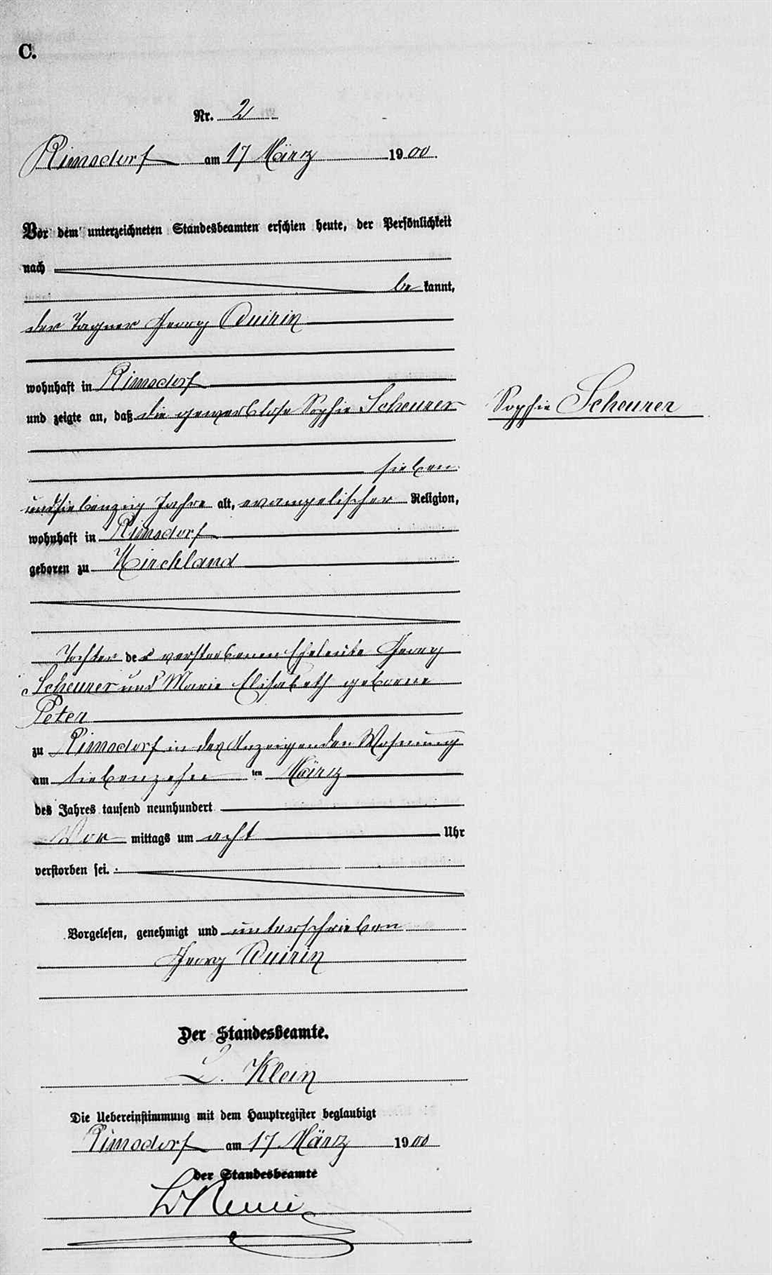 C.
Nr. 2
Rimsdorf am 17 März 1900
Vor dem unterzeichneten Standesbeamten erschien heute, der Persönlichkeit
nach
bekannt,
der Tagner Georg Quirin
wohnhaft in Rimsdorf
und zeigte an, daß die gewerblose Sophie Scheurer
Sophie Scheurer
sieben
undsiebenzig Jahre alt, evangelischer Religion,
wohnhaft in Rimsdorf
geboren zu Kirchland
Tochter der verstorbenen Eheleute Georg
Scheurer und Marie Elisabeth geborne
Peter
zu Rimsdorf in des Anzeigenden Wohnung
am siebenzehn ten März
des Jahres tausend neunhundert
Vor mittags um acht Uhr
verstorben sei.
Vorgelesen, genehmigt und unterschrieben
Georg Quirin
Der Standesbeamte.
L. Klein
Die Uebereinstimmung mit dem Hauptregister beglaubigt
Rimsdorf am 17 März 1900
der Standesbeamte